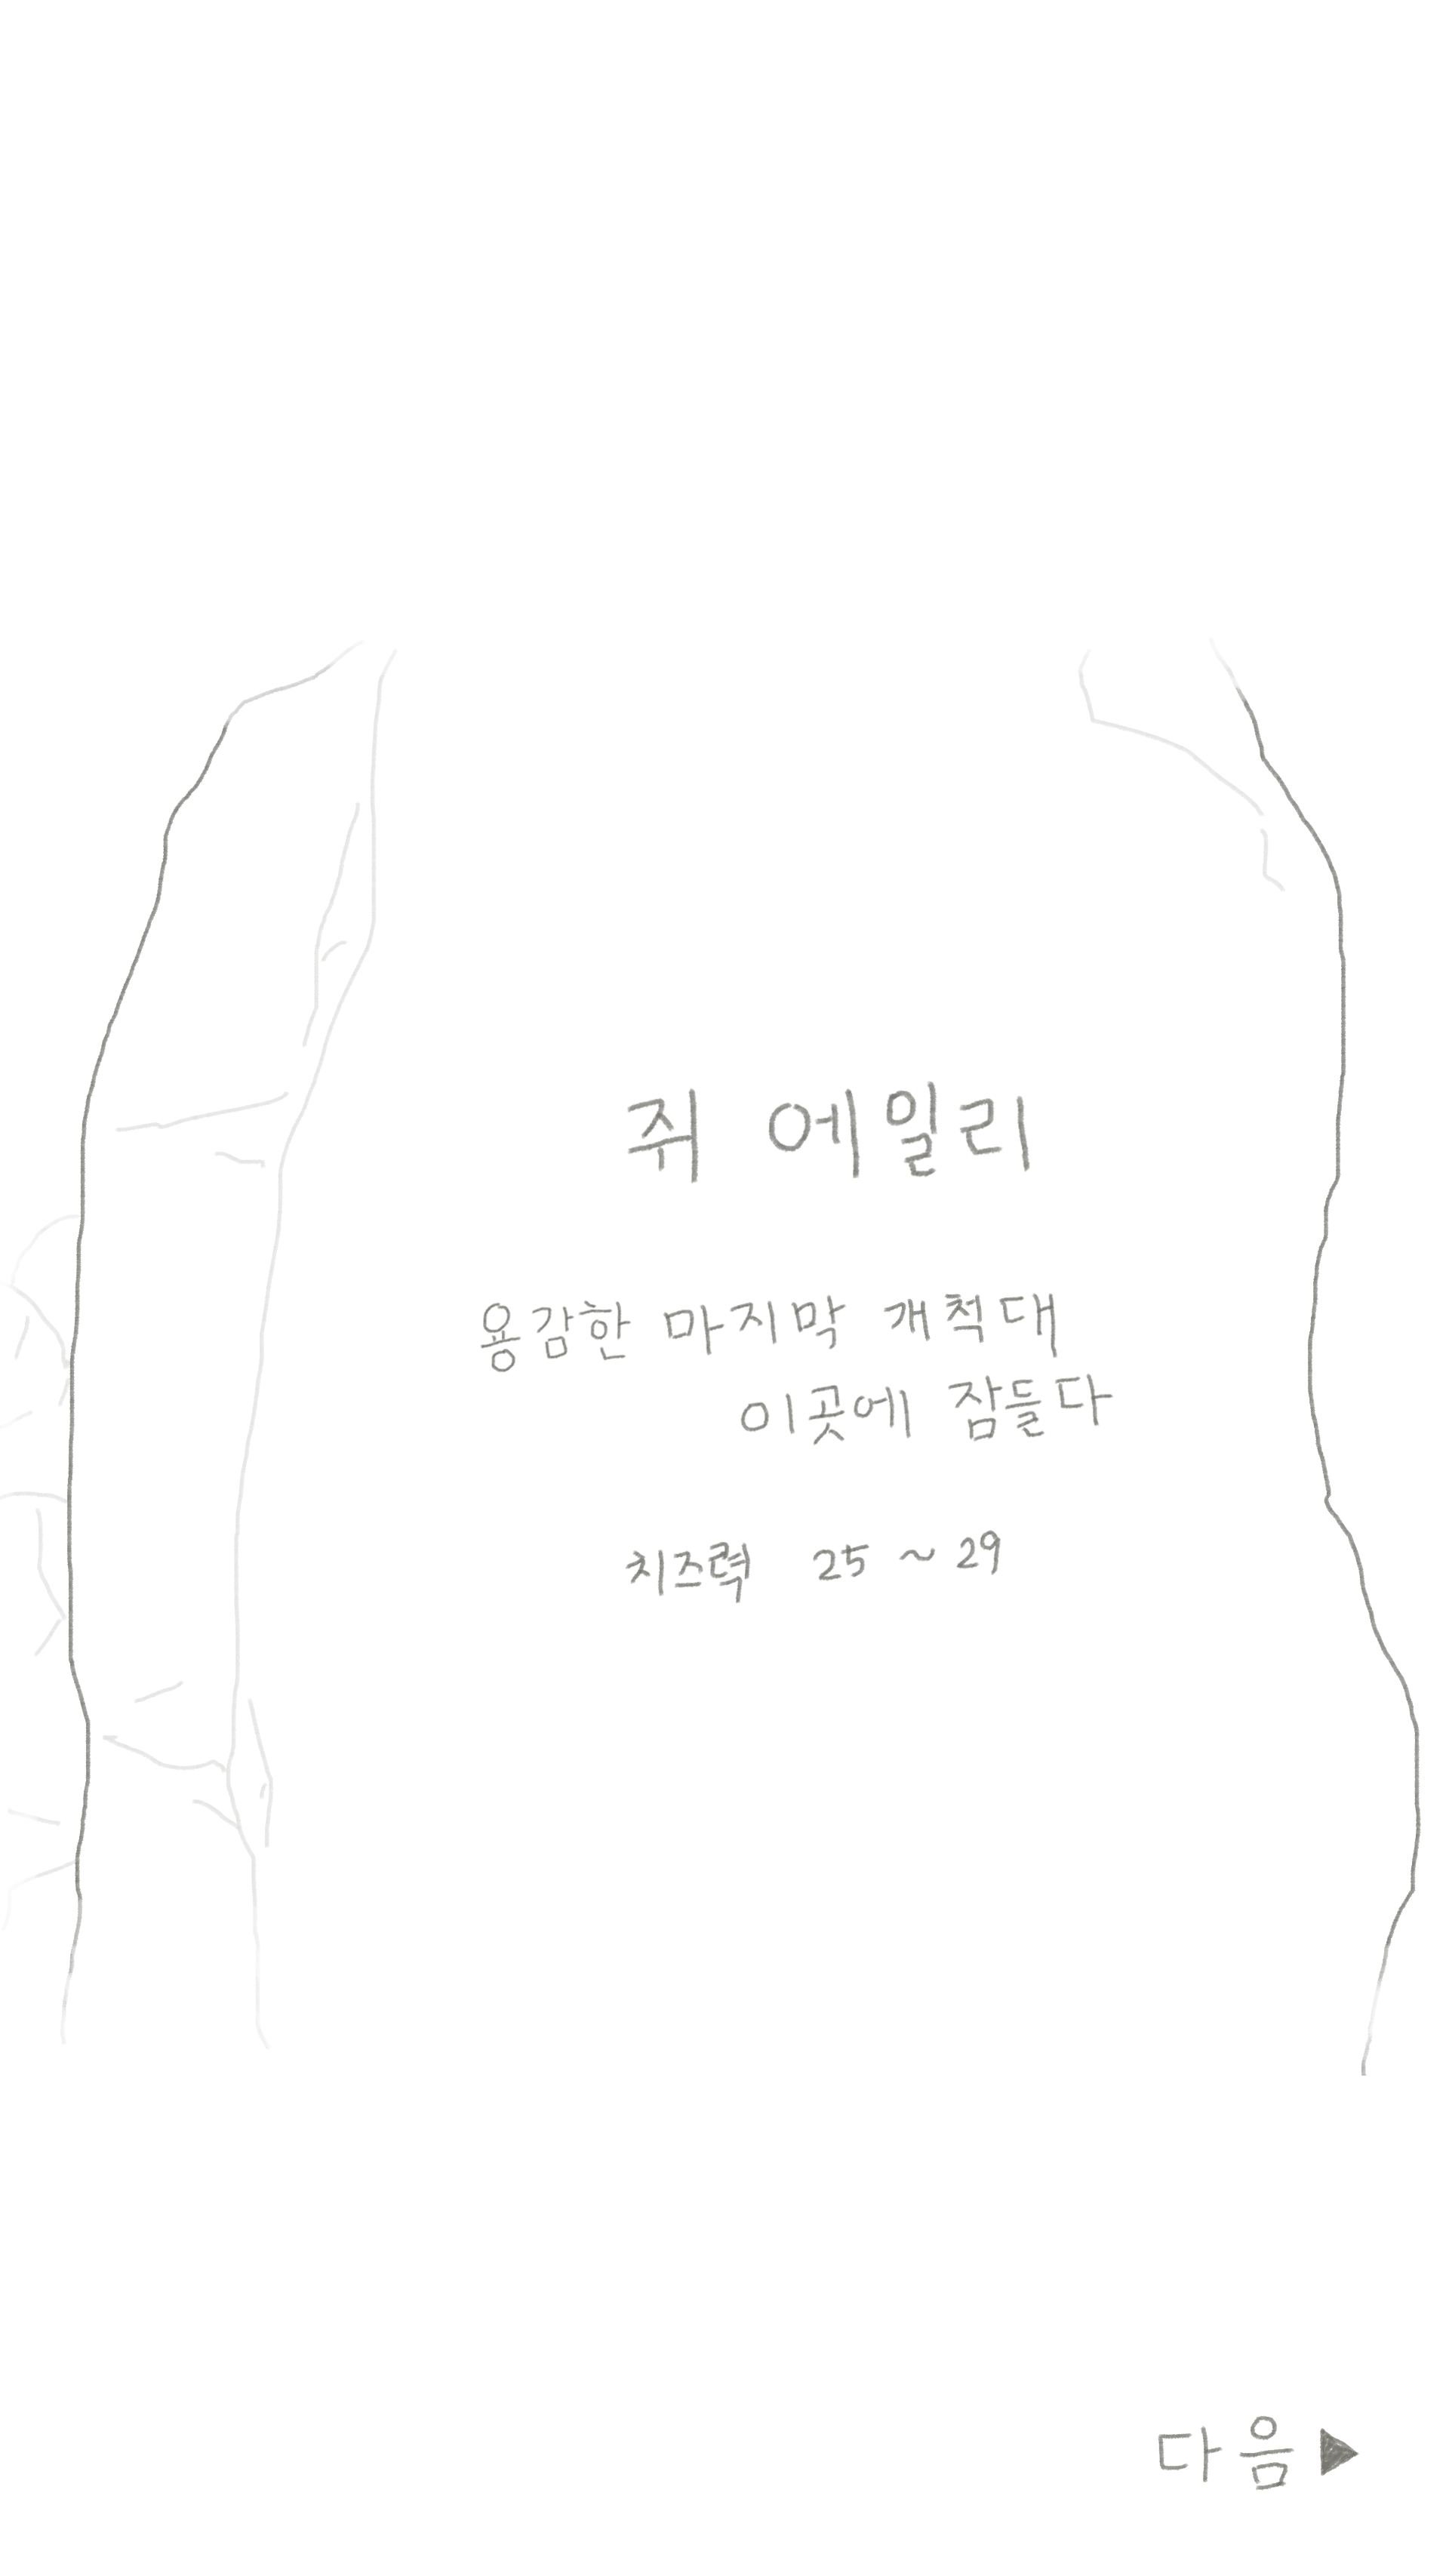 쥐 에일리
용감한 마지막 개척대
이곳에 잠들다
치즈력 25 ~ 29
다음▶